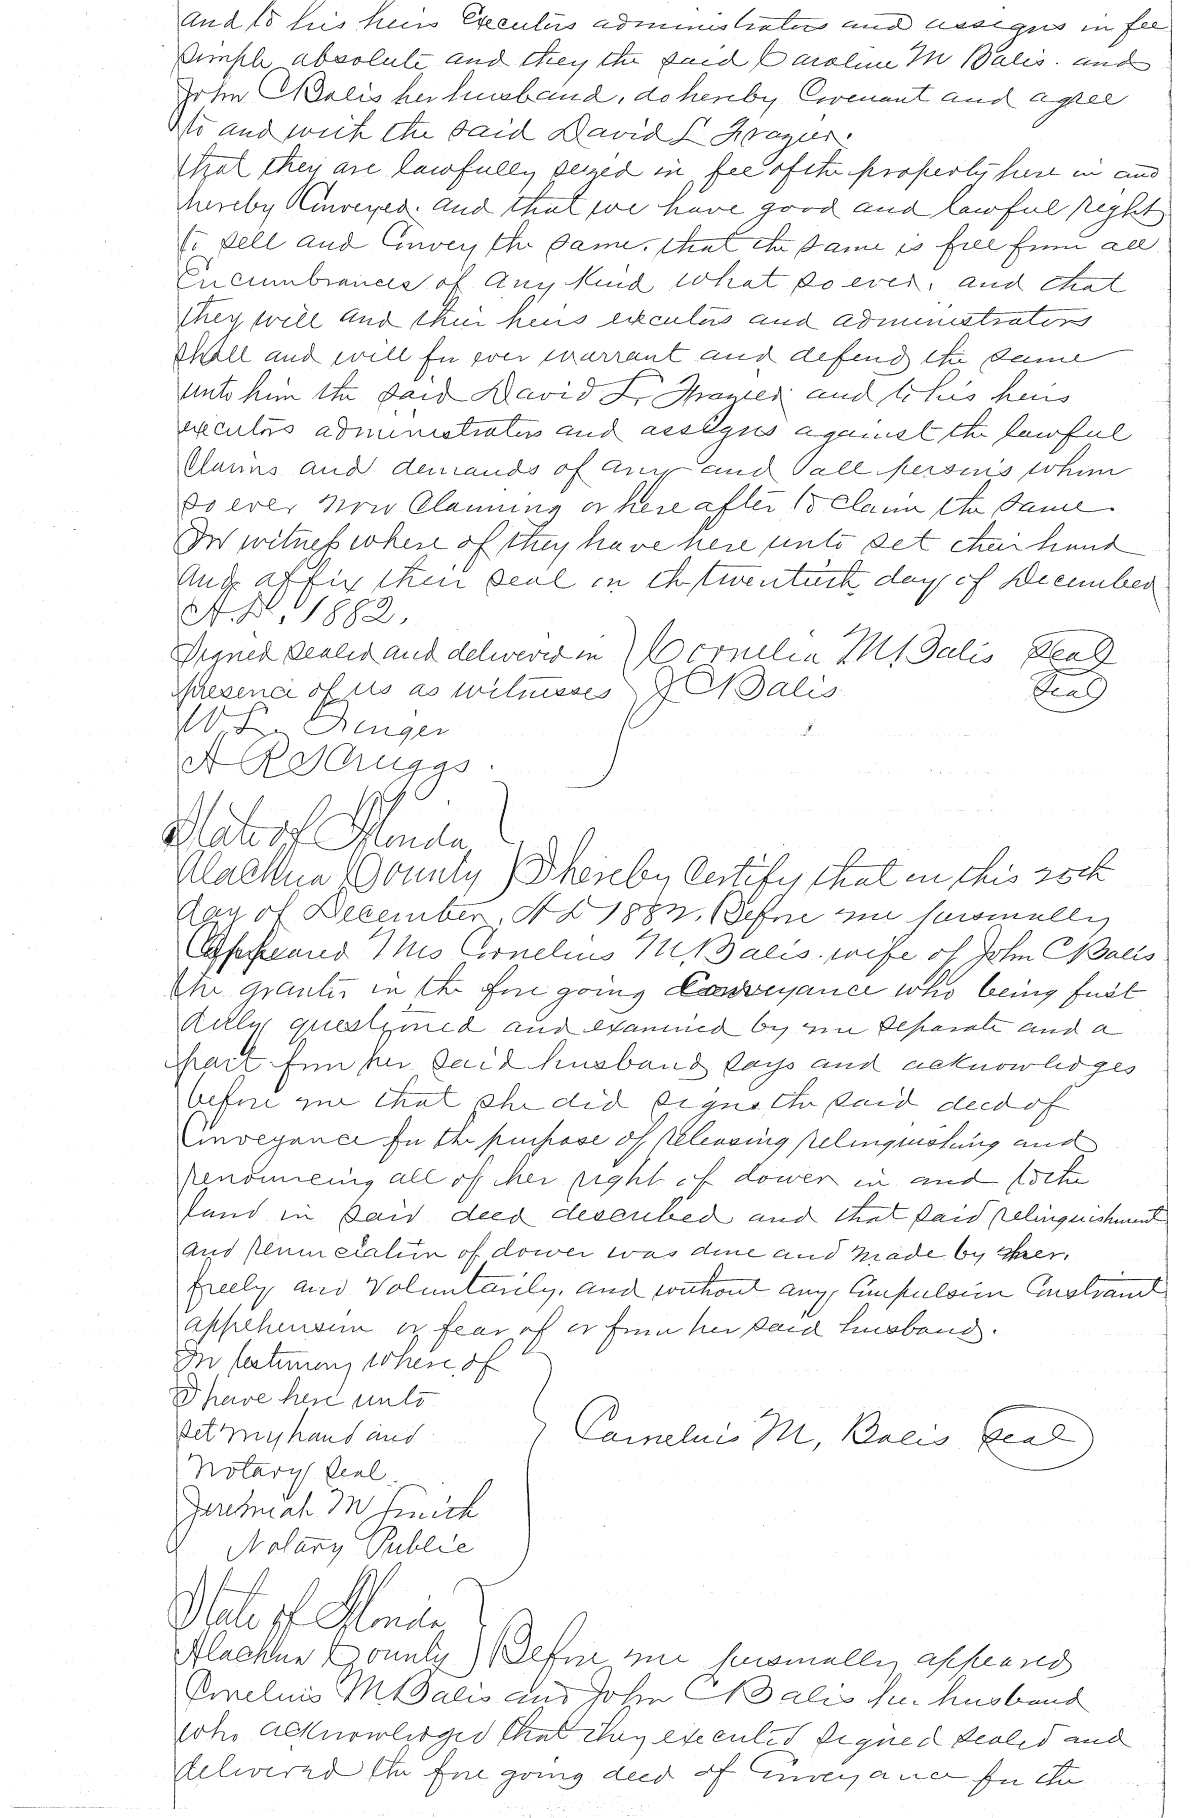 and to his heirs Executors administrators and assigns in fee
simple absolute and they the said Caroline M Balis. and
John C Balis her husband, do hereby Covenant and agree
to and with the said David L Frazier.
that they are lawfully seized in fee of the property here in and
hereby Conveyed. and that we have good and lawful right
to sell and Convey the same. that the same is free from all
Encumbrances of any Kind what so ever. and that
they will and their heirs executors and administrators
shall and will for ever warrant and defend the same
unto him the said David L. Frazier and to his heirs
executors administrators and assigns against the lawful
Claims and demands of any and all persons whom
so ever now Claiming or here after to claim the same.
In witness where of they have here unto set their hand
and affix their seal on th twentieth day of December
A.D. 1882.
Signed sealed and delivered in ) Cornelia M. Balis Seal
presence of us as witnesses ) J C Balis Seal
W. L. Denger
A R Scruggs.
State of Florida
Alachua County ) I hereby Certify that on this 20th
day of December, A D 1882. Before me personally
Appeared Mrs Cornelius M. Balis. wife of John C Balis
the grantor in the fore going Conveyance who being first
duly questioned and examined by me separate and a
part from her said husband says and acknowledges
before me that she did sign the said deed of
Conveyance for the purpose of releasing relinquishing and
renouncing all of her right of dower in and to the
land in said deed described and that said relinquishment
and renunciation of dower was done and made by her.
freely and Voluntarily. and without any Compulsion Constraint
apprehension or fear of or from her said husband.
In testimony where of
I have here unto
set my hand and
Notary Seal.
Jeremiah M Smith
Notary Public
Cornelius M. Balis Seal
State of Florida
Alachua County ) Before me personally appeared
Cornelius M Balis and John C Balis her husband
who acknowledged that they executed signed sealed and
delivered the fore going deed of Conveyance for the